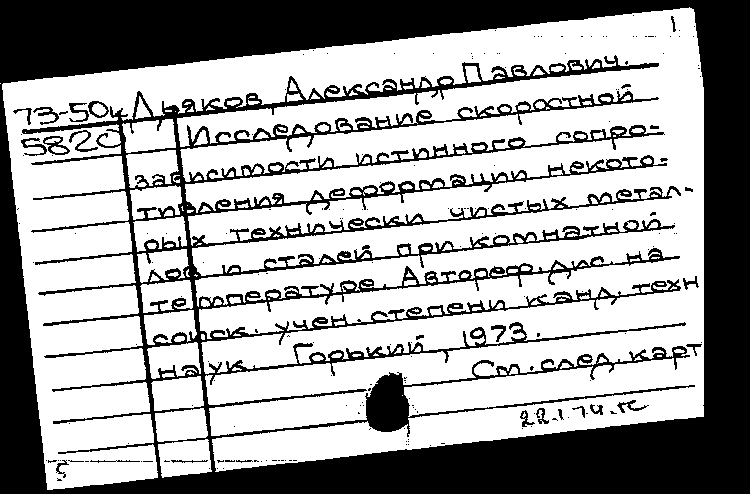 1
73-50к Дьяков, Александр Павлович.
5820 Исследование скоростной
зависимости истинного сопро-
тивления деформации некото-
рых технически чистых метал-
лов и сталей при комнатной
температуре. Автореф. дис. на
соиск. учен. степени канд. техн
наук. Горький, 1973.
См. след. карт
22.1.74.
5